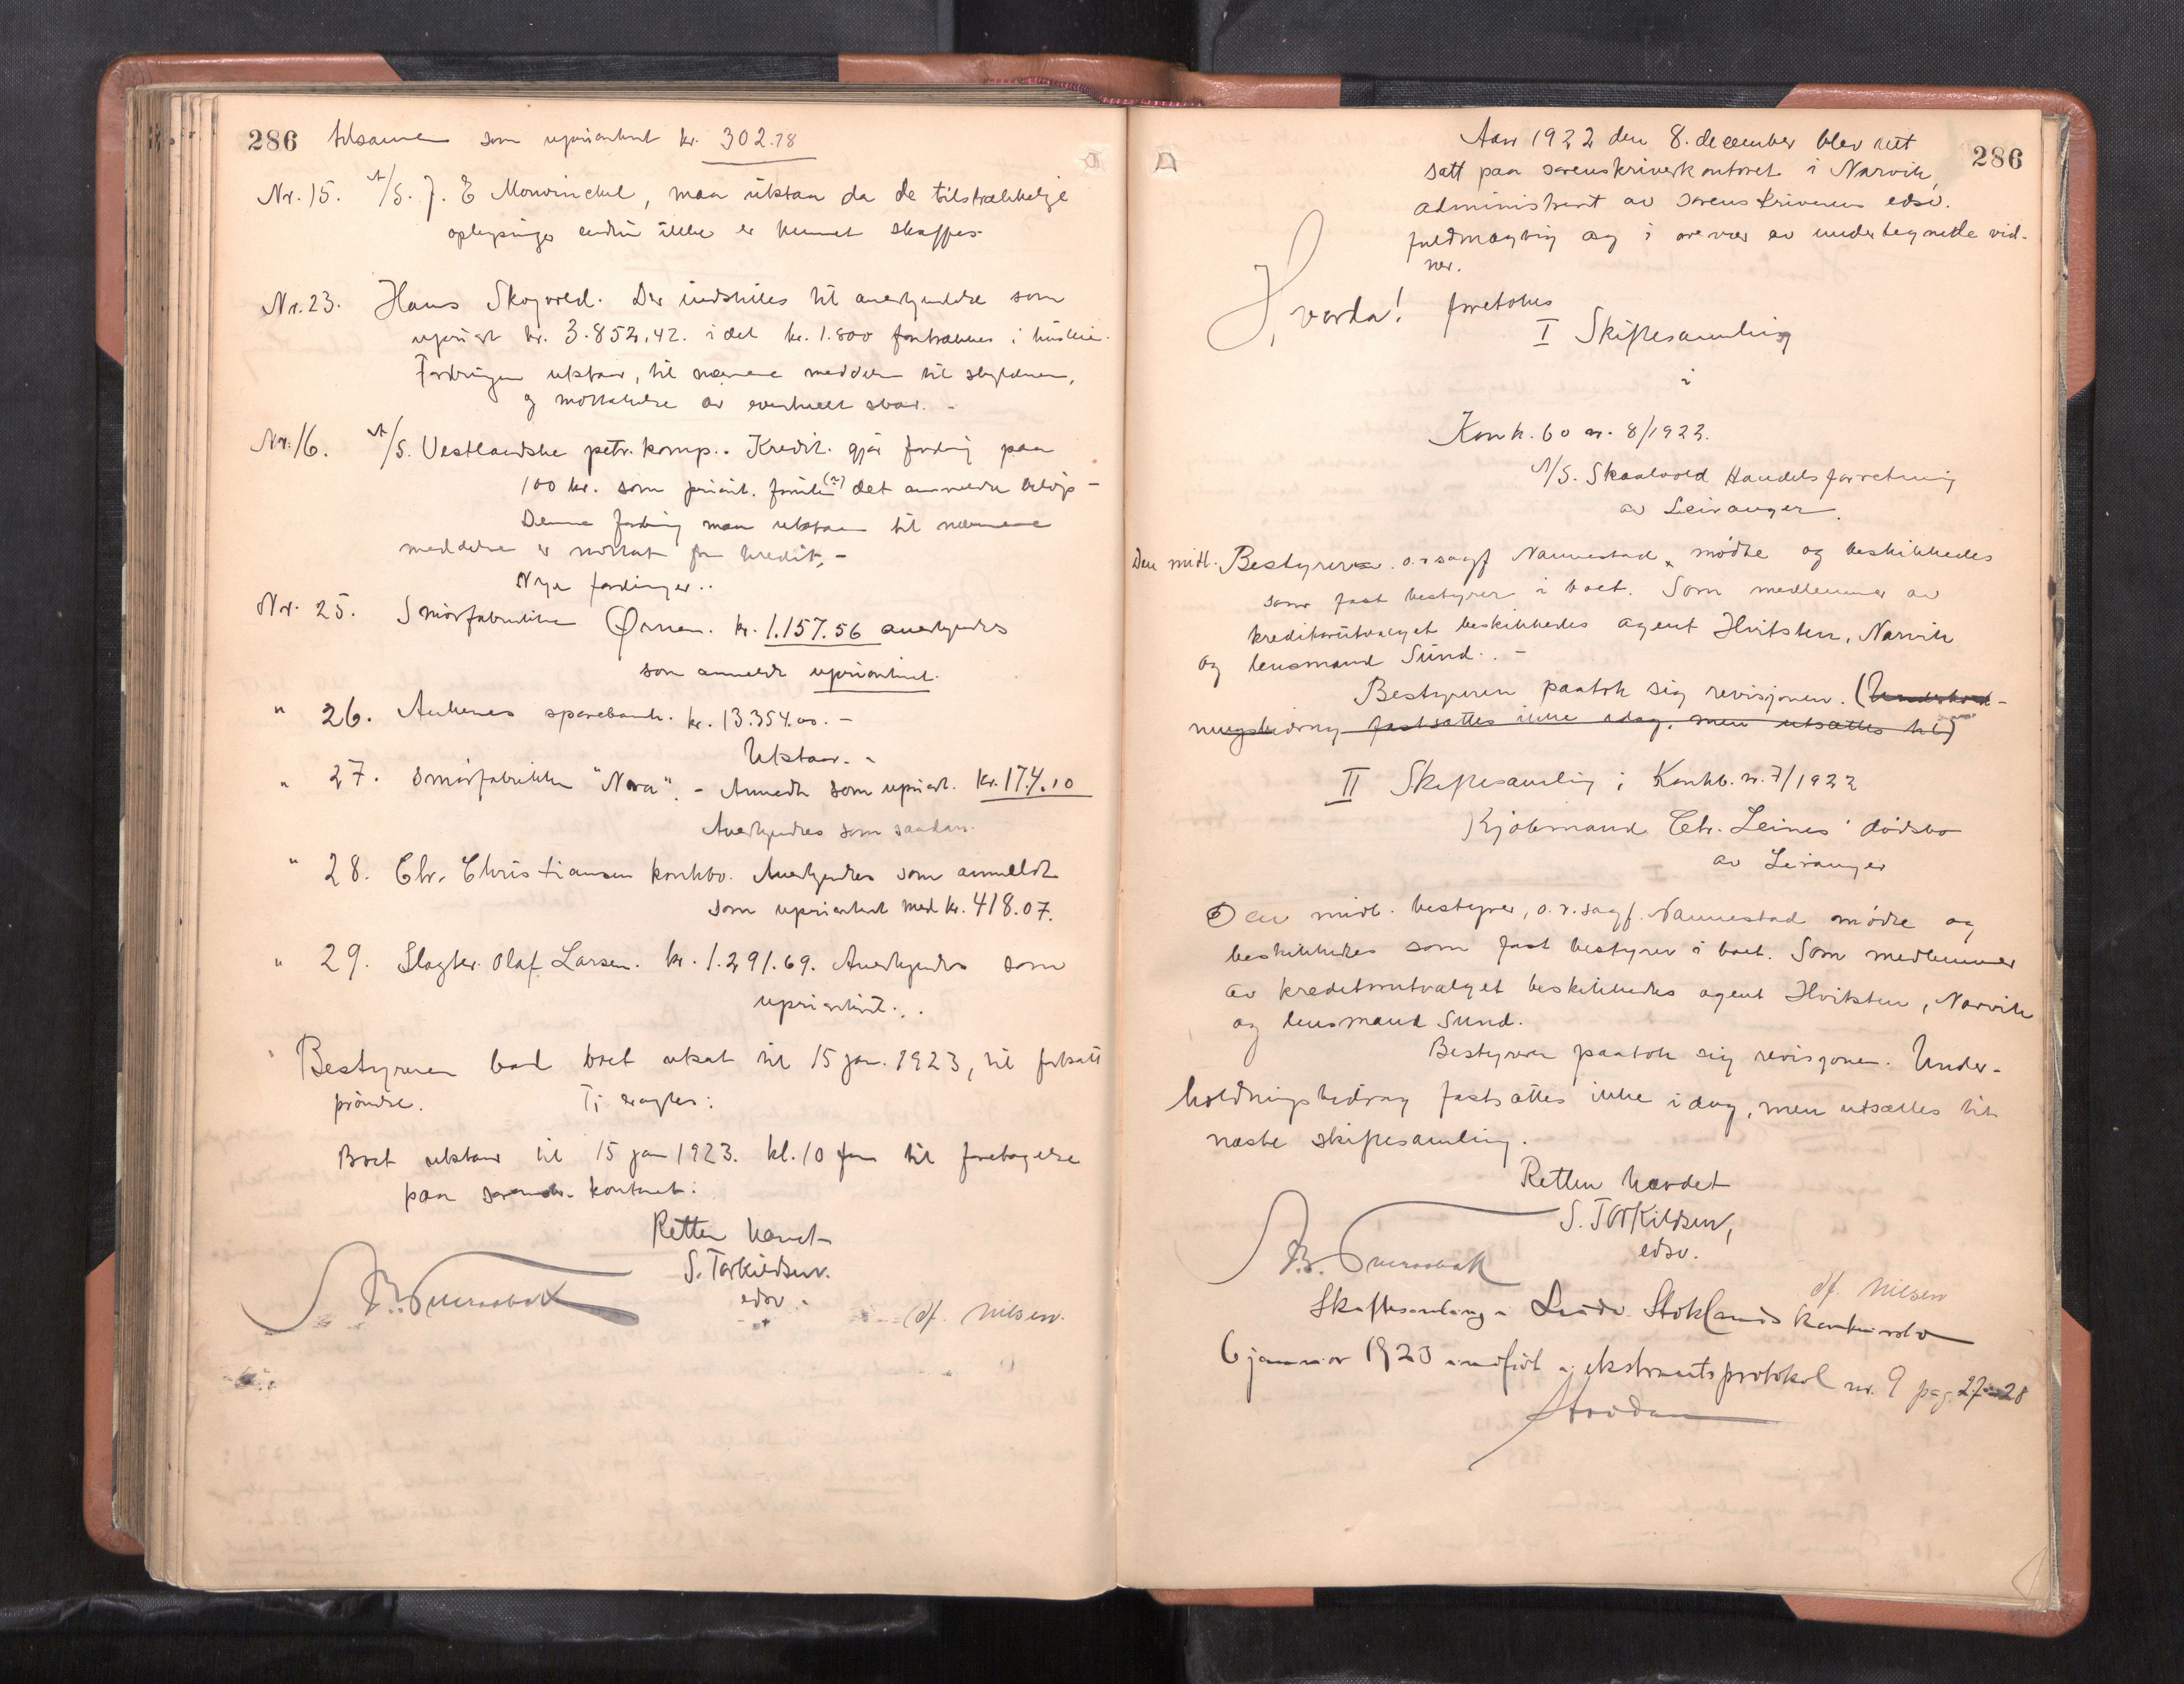 286 tilsammen som uprioritert kr. 302.78
Nr. 15. A/S. J. E Mowinckel, maa utstaa da de tilstrækkelige
oplysninger endnu ikke er kunnet skaffes.
Nr. 23. Hans Skogvold. Der indstilles til anerkjendelse som
upriort kr. 3.852,42. i det kr. 1.800 fratrækkes i husleie.
Fordringen utstaar, til nærmere meddelelse til skyldneren,
og mottakelse av eventuelt svar. -
Nr. 16. A/S. Vestlandske petr. komp.. Kredit. gjør fordring paa
100 kr. som priorit. foruten (?) det anmeldte beløp -
Denne fordring maa utstaa til nærmere
meddelse er mottat fra kredit. -
Nye fordringer..
Nr. 25. Smørfabrikken Ørnen. kr. 1.157.56 anerkjendes
som anmeldt uprioritert.
" 26. Ankenes sparebank. kr. 13.354.00. -
Utstaar. -
" 27. Smørfabrikken "Nora". - Anmeldt som upriort. kr. 174.10
Anerkjendes som saadan.
" 28. Chr. Christiansen konkbo. Anerkjendes som anmeldt
som uprioritert med kr. 418.07.
" 29. Slagter Olaf Larsen. kr. 1.291.69. Anerkjendes som
uprioritert..
Bestyreren bad boet utsat til 15 jan. 1923, til fortsatt
prøvelse. Ti eragtes:
Boet utstaar til 15 jan 1923. kl. 10 fm til foretagelse
paa sorenskr. kontoret.
Retten hævet
S. Torkildsen.
edsv.
Of. Nilsen.
286
Aar 1922 den 8. december blev rett
satt paa sorenskriverkontoret i Narvik,
administrert av sorenskriverens edsv.
fuldmægtig og i overvær av undertegnede vid-
ner.
Hvorda! foretokes
I Skiftesamling
i
Konk. bo nr. 8/1922.
A/S. Skaalvold Handelsforretning
av Leiranger.
Den midl. Bestyrer o.r.sagf Nannestad mødte og beskikkedes
som fast bestyrer i boet. Som medlemmer av
kreditorutvalget beskikkedes agent Hvitsten, Narvik
og lensmand Sund.. -
Bestyreren paatok sig revisjonen. (Underhold-
ningsbidrag fastsættes ikke idag, men utsættes til)
II Skiftesamling i Konkb. nr. 7/1922
Kjøbmand Chr. Leines' dødsbo
av Leiranger
Den midl. bestyrer, o.r.sagf. Nannestad mødte og
beskikkedes som fast bestyrer i boet. Som medlemmer
av kreditorutvalget beskikkedes agent Hvitsten, Narvik
og lensmand Sund.
Bestyreren paatok sig revisjonen. Under-
holdningsbidrag fastsættes ikke idag, men utsættes til
næste skiftesamling.
Retten hævdet
S. Torkildsen,
edsv.
Of. Nilsen
Skiftesamling i Ludv. Stoklands konkursbo
6 januar 1923 indført i ekstraretsprotokol nr. 9 pag. 27-28